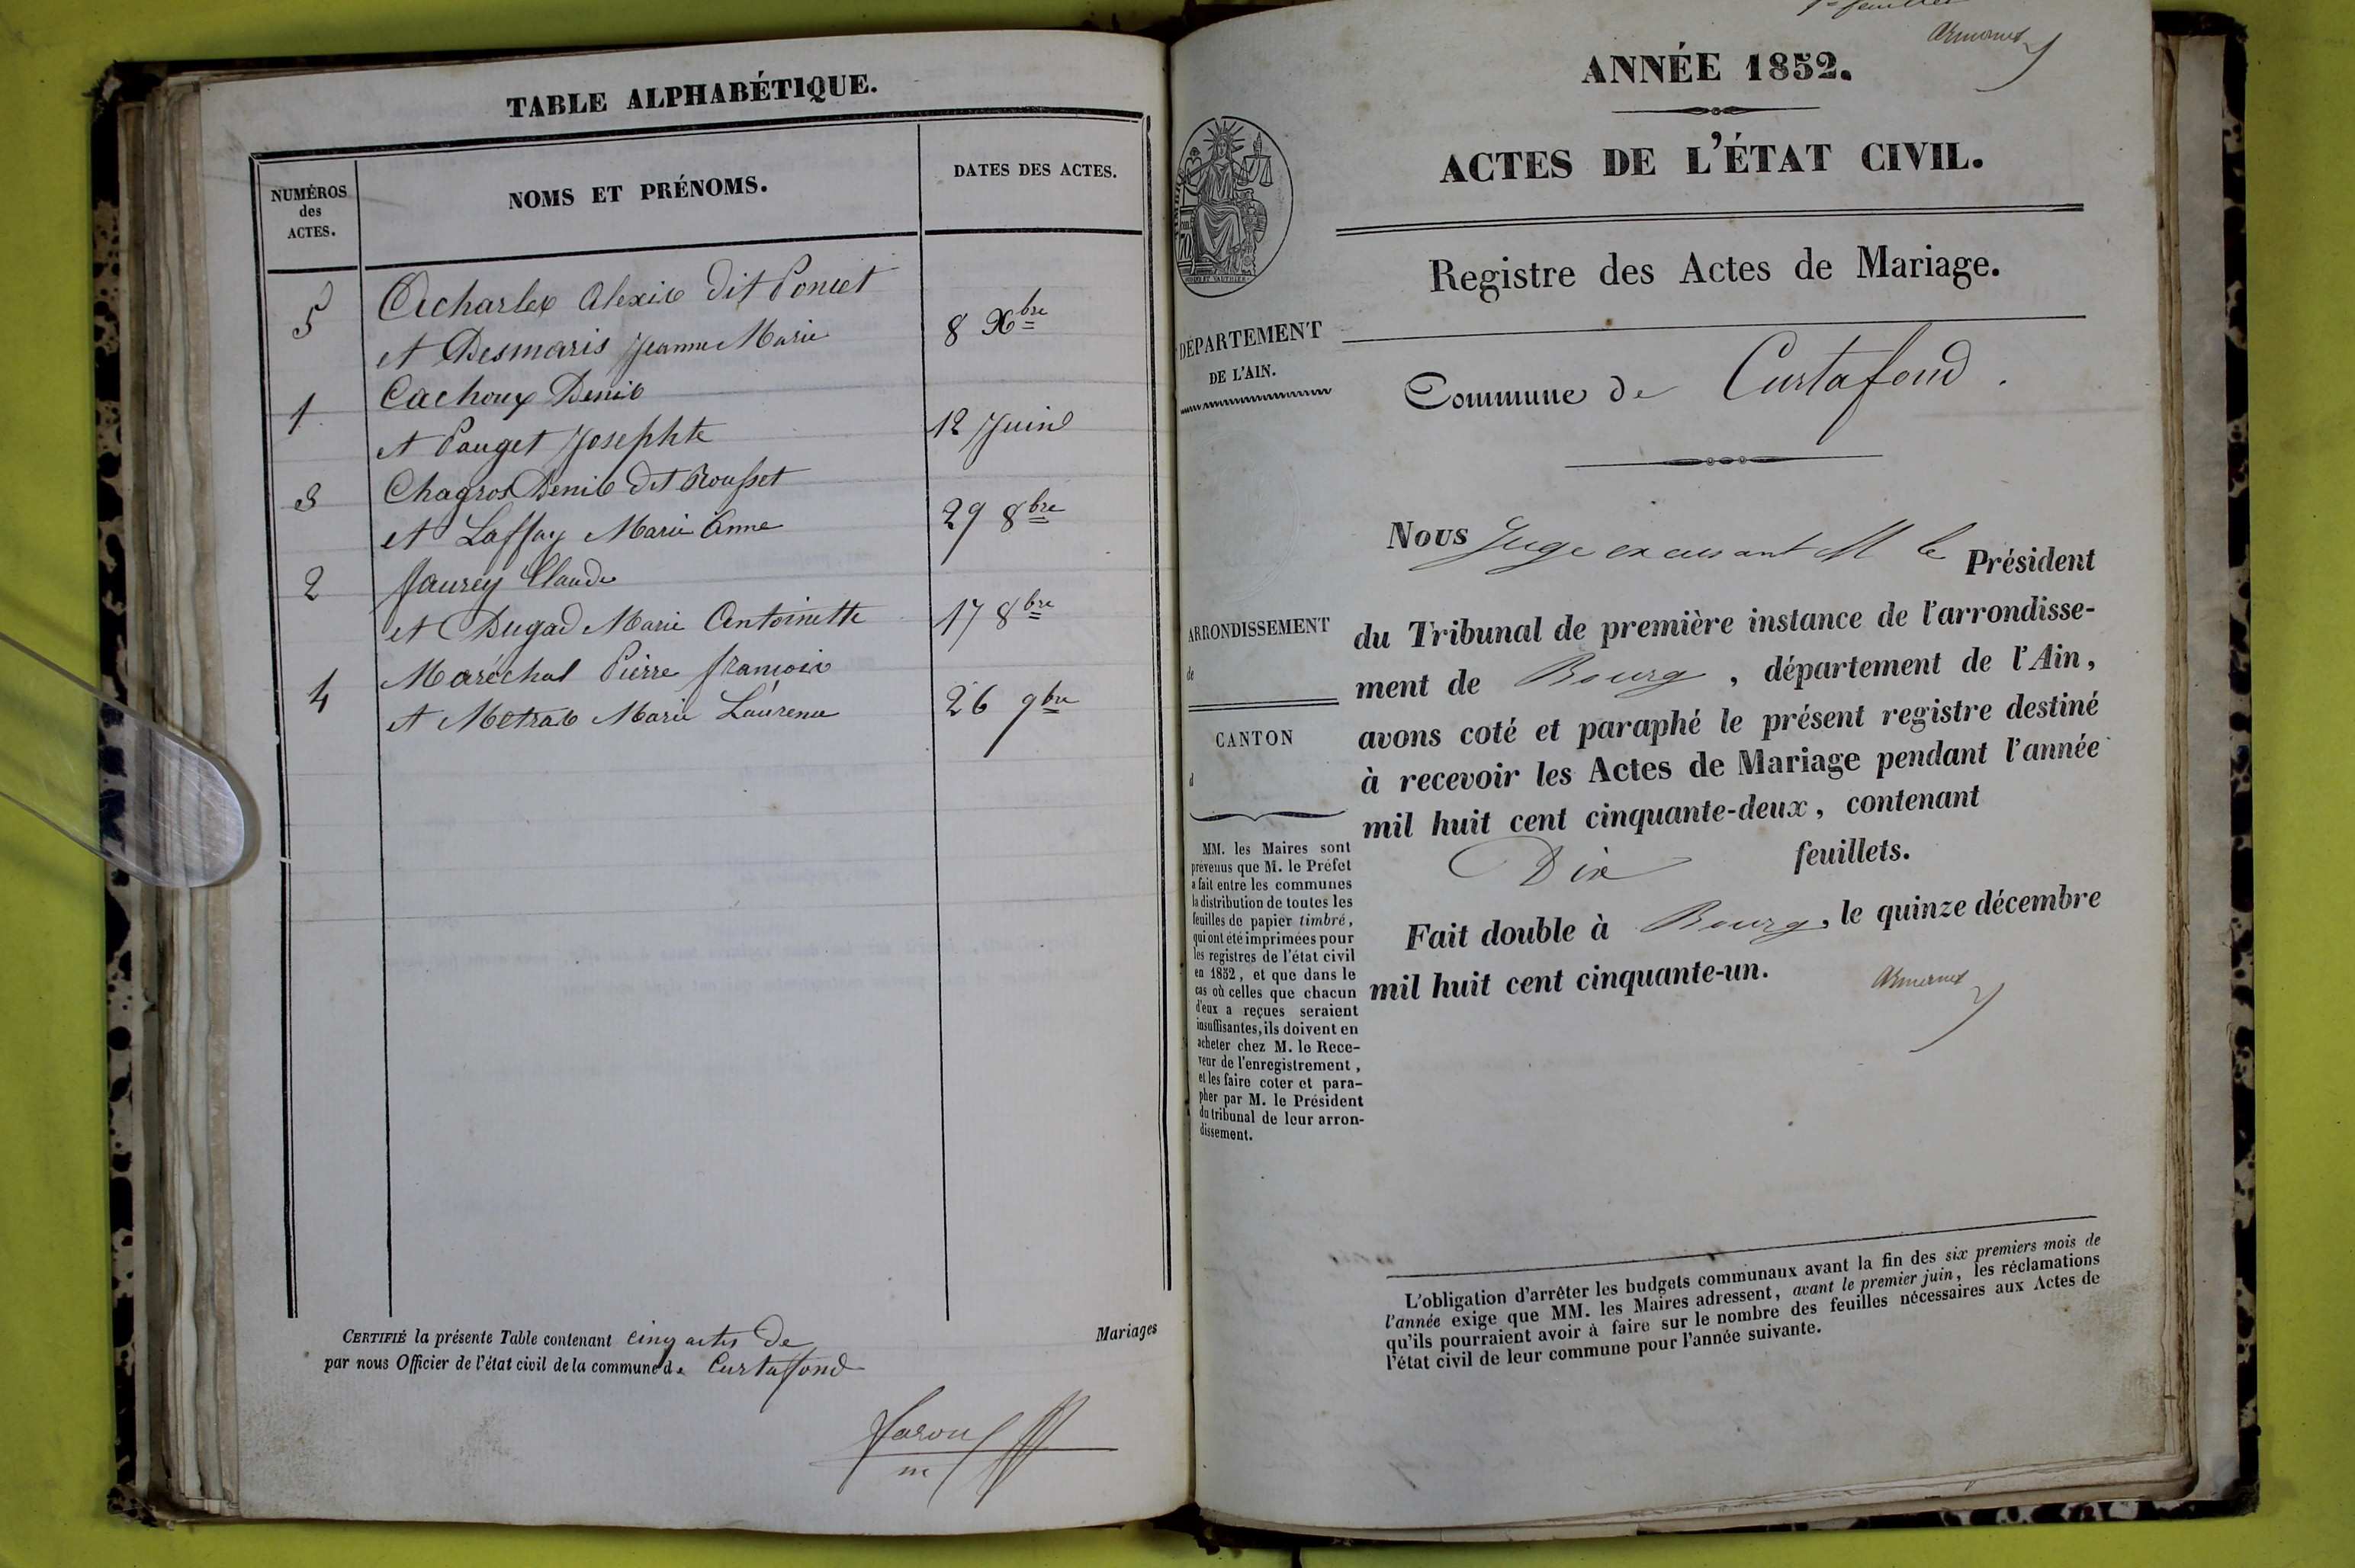 TABLE ALPHABÉTIQUE.
NUMÉROS
des
ACTES.
NOMS ET PRÉNOMS.
DATES DES ACTES.
5 Acharlex Alexis dit Poncet
et Desmaris Jeanne Marie 8 Xbre
1 Cachoux Denis
et Pauget Josephte 12 Juin
3 Chagros Denis dit Rousset
et Laffay Marie Anne 29 8bre
2 Jaurey Claude
et Dugad Marie Antoinette 17 8bre
4 Maréchal Pierre françois
et Metras Marie Laurence 26 9bre
CERTIFIÉ la présente Table contenant cinq actes de Mariages
par nous Officier de l'état civil de la commune de Curtafond
ANNÉE 1852.
ACTES DE L'ÉTAT CIVIL.
Registre des Actes de Mariage.
DÉPARTEMENT
DE L'AIN.
Commune de Curtafond.
ARRONDISSEMENT
de
CANTON
d
MM. les Maires sont
prévenus que M. le Préfet
a fait entre les communes
la distribution de toutes les
feuilles de papier timbré,
qui ont été imprimées pour
les registres de l'état civil
en 1852, et que dans le
cas où celles que chacun
d'eux a reçues seraient
insuffisantes, ils doivent en
acheter chez M. le Rece-
veur de l'enregistrement,
et les faire coter et para-
pher par M. le Président
du tribunal de leur arron-
dissement.
Nous Juge M le Président
du Tribunal de première instance de l'arrondisse-
ment de Bourg, département de l'Ain,
avons coté et paraphé le présent registre destiné
à recevoir les Actes de Mariage pendant l'année
mil huit cent cinquante-deux, contenant
Dix feuillets.
Fait double à Bourg, le quinze décembre
mil huit cent cinquante-un.
L'obligation d'arrêter les budgets communaux avant la fin des six premiers mois de
l'année exige que MM. les Maires adressent, avant le premier juin, les réclamations
qu'ils pourraient avoir à faire sur le nombre des feuilles nécessaires aux Actes de
l'état civil de leur commune pour l'année suivante.